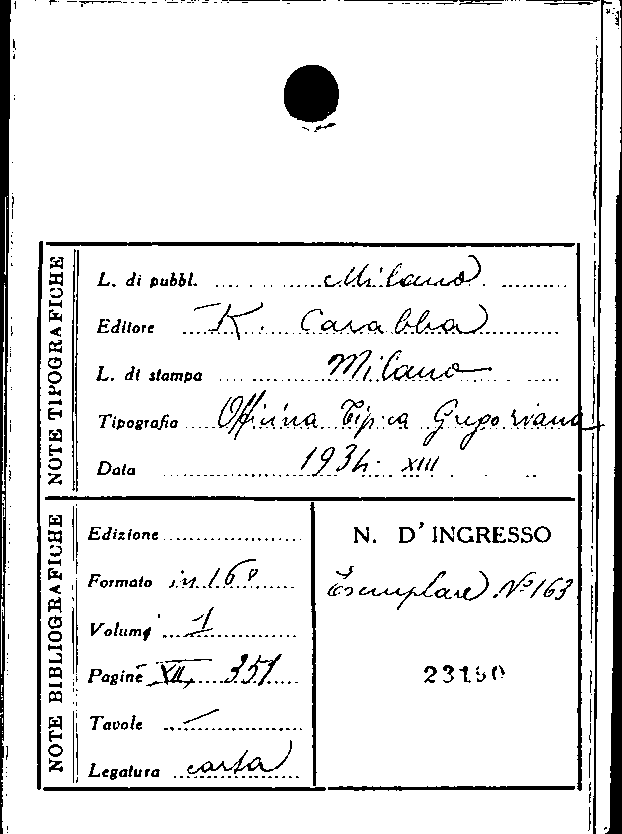 NOTE TIPOGRAFICHE
L. di pubbl. Milano
Editore K. Carabba
L. di stampa Milano
Tipografia Officina Tipica Gregoriana
Data 1934. XIII
NOTE BIBLIOGRAFICHE
Edizione
Formato in 16º
Volumi 1
Pagine XII, 351
Tavole —
Legatura carta
N. D'INGRESSO
Esemplare Nº 163